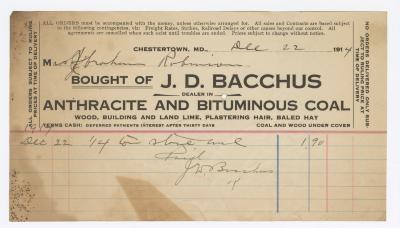 ALL ORDERS must be accompanied with the money, unless otherwise arranged for. All sales and Contracts are based subject
to the following contingencies, viz: Freight Rates, Strikes, Railroad Delays or other causes beyond our control. All
agreements are cancelled when such exist until troubles are ended. Prices subject to change without notice.
ALL ORDERS SUBJECT TO RULING
PRICES AT TIME OF DELIVERY
NO ORDERS DELIVERED ONLY SUB-
JECT TO RULING PRICE AT
TIME OF DELIVERY
CHESTERTOWN, MD., Dec 22 1914
M Abraham Robinson
BOUGHT OF J. D. BACCHUS
DEALER IN
ANTHRACITE AND BITUMINOUS COAL
WOOD, BUILDING AND LAND LIME, PLASTERING HAIR, BALED HAY
TERMS CASH: DEFERRED PAYMENTS INTEREST AFTER THIRTY DAYS COAL AND WOOD UNDER COVER
Dec 22 1/4 ton stove coal 1 90
Paid
J D Bacchus